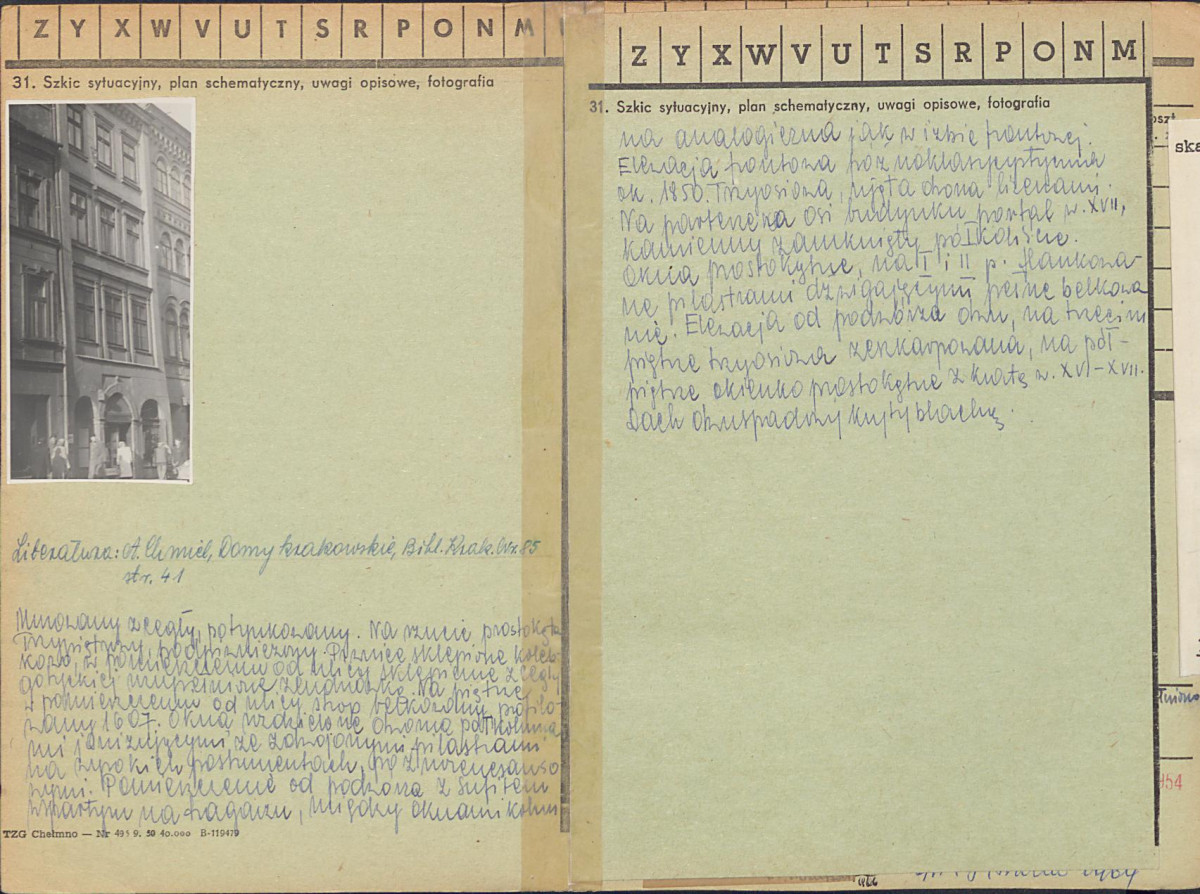 Z Y X W V U T S R P O N M
31. Szkic sytuacyjny, plan schematyczny, uwagi opisowe, fotografia
Literatura: A. Chmiel, Domy krakowskie, Bibl. Krak. Nr 85
str. 41
Murowany z cegły, potynkowany. Na rzucie prostokąta
Trzypiętrowy, podpiwniczony. Piwnice sklepione koleb-
kowo, w pomieszczeniu od ulicy sklepienie z cegły
gotyckiej wzmocnione. Na piętrze
w pomieszczeniu od ulicy strop belkowany profilo-
wany 1607. Okna rozdzielone dwoma półkolumna
mi jonizującymi ze zdwojonymi pilastrami
na wysokich postumentach, późnorenesanso
wymi. Pomieszczenie od podwórza z sufitem
wspartym na tragarzu, między oknami kolum
TZG Chełmno — Nr 495 9. 59 40.000 B-119479
Z Y X W V U T S R P O N M
31. Szkic sytuacyjny, plan schematyczny, uwagi opisowe, fotografia
na analogiczna jak w izbie frontowej.
Elewacja frontowa późnoklasycystyczna
ok. 1850. Trzyosiowa, ujęta dwoma lizenami.
Na parterze na osi budynku portal w. XVII,
kamienny zamknięty półkoliście.
Okna prostokątne, na I i II p. flankowa-
ne pilastrami dźwigającymi pełne belkowa
nie. Elewacja od podwórza dwu, na trzecim
piętrze trzyosiowa zeszkarpowana, na pół-
piętrze okienko prostokątne z kratą w. XVI-XVII.
Dach dwuspadowy kryty blachą.
ska
954